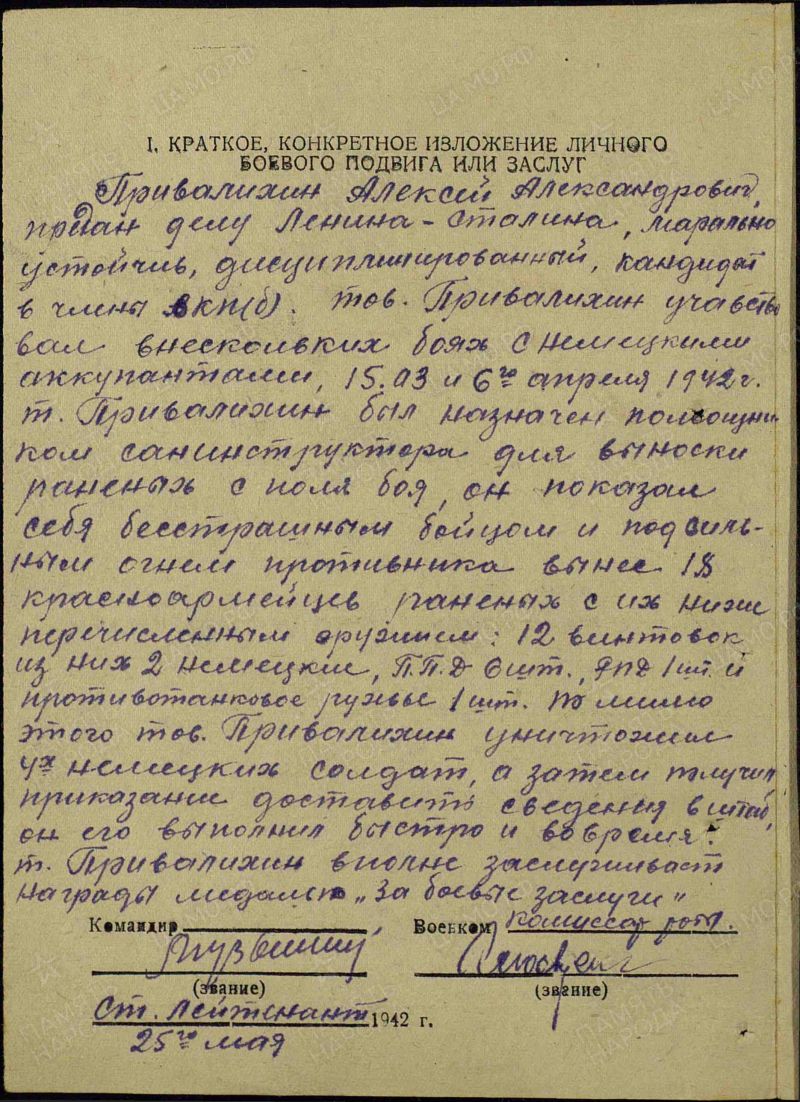 I. КРАТКОЕ, КОНКРЕТНОЕ ИЗЛОЖЕНИЕ ЛИЧНОГО
БОЕВОГО ПОДВИГА ИЛИ ЗАСЛУГ
Привалихин Алексей Александрович,
предан делу Ленина-Сталина, марально
устойчив, дисциплинированный, кандидат
в члены ВКП(б). тов. Привалихин учавство
вал внескольких боях с немецкими
аккупантами, 15.03 и 6го апреля 1942г.
т. Привалихин был назначен помощни-
ком санинструктора для выноски
раненых с поля боя, он показал
себя бесстрашным бойцом и под силь-
ным огнем противника вынес 18
красноармейцев раненых с их ниже
перечисленным оружием: 12 винтовок
из них 2 немецкие, П.П.Д 6шт., РПД 1шт. и
противотанковое ружье 1шт. По мимо
этого тов. Привалихин уничтожил
4х немецких солдат, а затем получил
приказание доставить сведения в штаб,
он его выполнил быстро и вовремя.
т. Привалихин вполне заслуживает
награды медалью „За боевые заслуги"
Командир
Военком комиссар роты.
(звание)
(звание)
Ст. Лейтенант 1942 г.
25го мая
ЦА МО.РФ